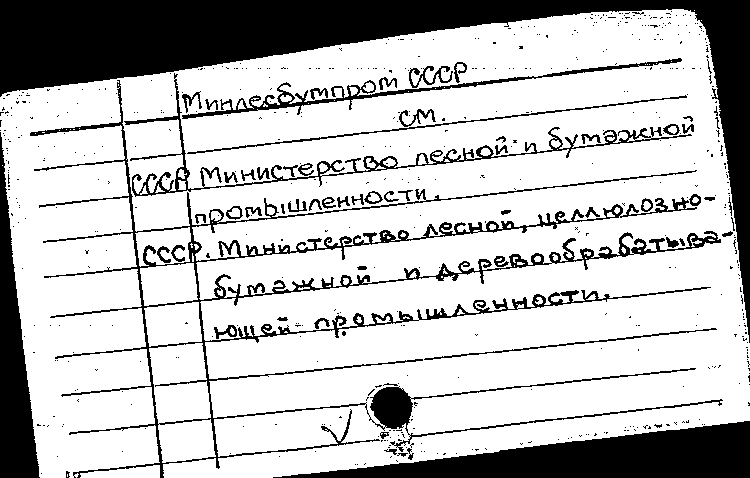 Минлесбумпром СССР
см.
СССР Министерство лесной и бумажной
промышленности.
СССР. Министерство лесной, целлюлозно-
бумажной и деревообрабатыва-
ющей промышленности.